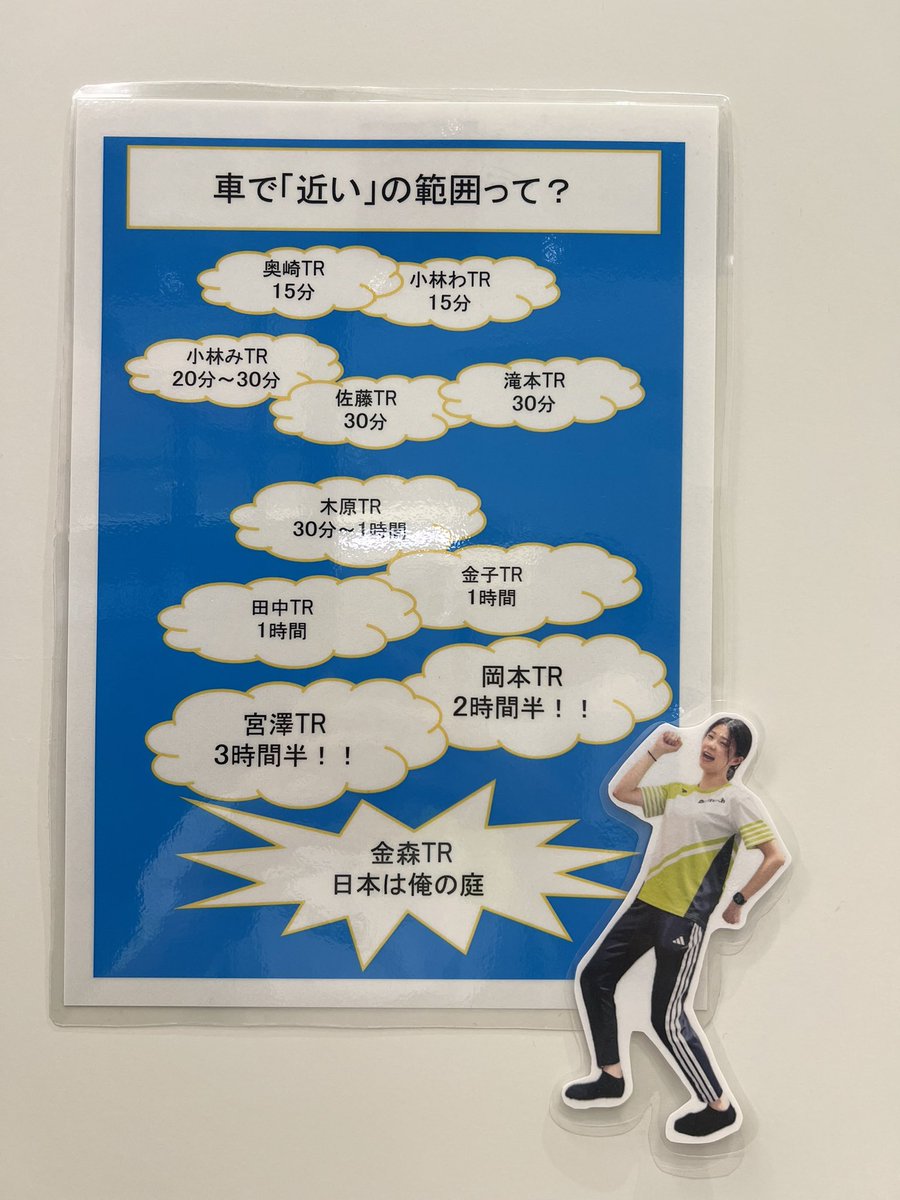 車で「近い」の範囲って？
奥崎TR
15分
小林わTR
15分
小林みTR
20分～30分
佐藤TR
30分
滝本TR
30分
木原TR
30分～1時間
金子TR
1時間
田中TR
1時間
岡本TR
2時間半！！
宮澤TR
3時間半！！
金森TR
日本は俺の庭